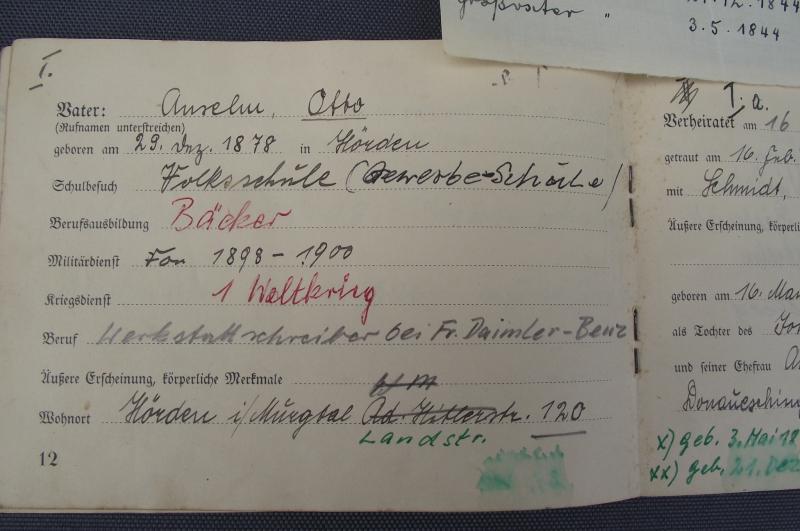 Großvater " 21.12.1844
3.5.1844
I.
Vater: Anselm, Otto
(Rufnamen unterstreichen)
geboren am 29. Dez. 1878 in Hörden
Schulbesuch Volksschule (Gewerbe-Schule)
Berufsausbildung Bäcker
Militärdienst Von 1898 - 1900
Kriegsdienst 1 Weltkrieg
Beruf Werkstattschreiber bei Fr. Daimler-Benz
Äußere Erscheinung, körperliche Merkmale
Wohnort Hörden i/Murgtal Ad. Hitlerstr. 120
Landstr.
12
I. a.
Verheiratet am 16
getraut am 16. Feb.
mit Schmidt,
Äußere Erscheinung, körperli
geboren am 16. Mai
als Tochter des
und seiner Ehefrau
Donaueschin
x) geb. 3. Mai 18
xx) geb. 21. Dez